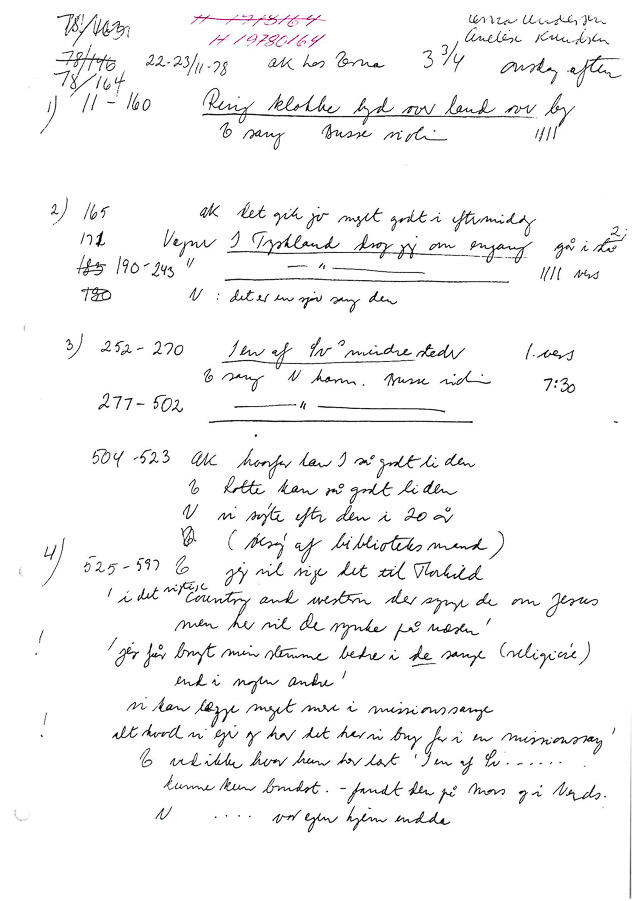 H 1978164
H 19780164
Erna Andersen
Anelise Knudsen
78/146
78/164
22-23/11-78 AK hos Erna 3 3/4 onsdag aften
1) 11 - 160 Ring klokke lyd over land over by
E sang Busse violin ////
2) 165 AK det gik jo meget godt i eftermiddag
171 Vagner I Tyskland drog jeg om engang gå i stå 2;
185 190-243 " — " — //// vers
190 V : det er en sjov sang den
3) 252 - 270 I en af Sv° mindre steder 1. vers
E sang V harm. Busse violin 7:30
277 - 502 — " —
504 - 523 AK hvorfor kan I så godt li den
E Lotte kan så godt li den
V vi søgte efter den i 20 år
E (besøg af biblioteksmand)
4) 525 - 597 E jeg vil sige det til Thorkild
'i det rigtige Country and western der synger de om Jesus
men her vil de rynke på næsen'
! 'jeg får brugt min stemme bedre i de sange (religiøse)
end i nogen andre'
vi kan lægge meget mere i missionssange
! alt hvad vi ejer og har det har vi brug for i en missionssang'
E ved ikke hvor hun har lært 'I en af Sv. ......
kunne kun brudst. - fandt den på Mors og i Vends.
V .... vor egen hjem endda